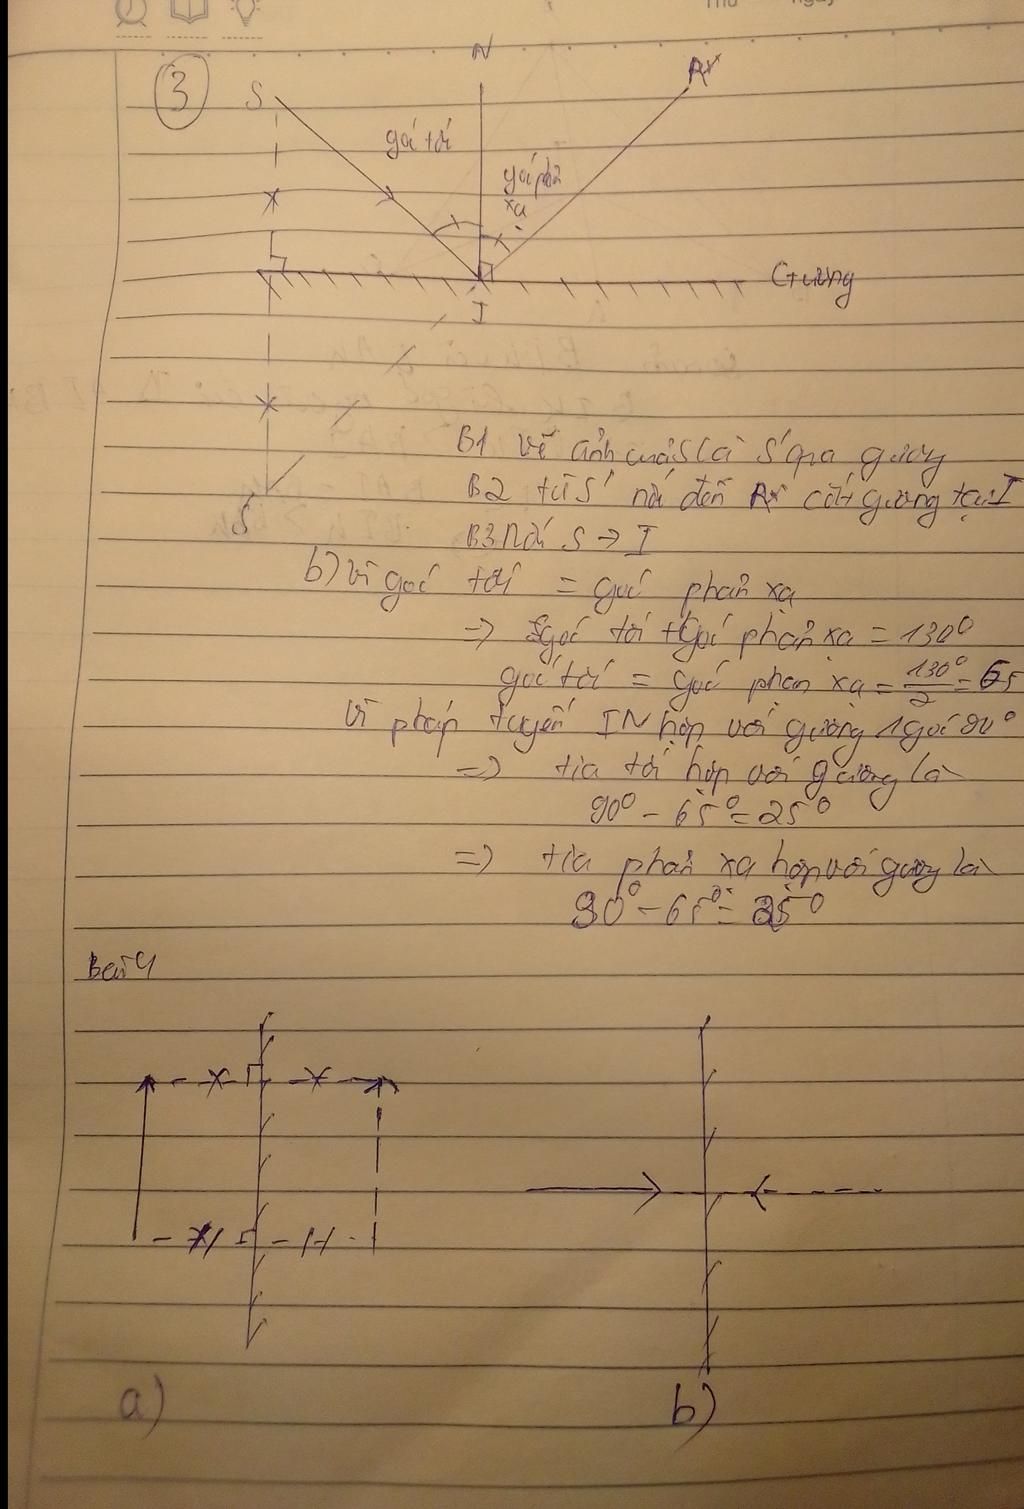 Thứ
ngày
3
N
S
R
góc tới
góc phản
xạ
Gương
I
B1 vẽ ảnh của S là S' qua gương
B2 từ S' nối đến R cắt gương tại I
B3 Nối S → I
S'
b) Vì góc tới = góc phản xạ
=> góc tới + góc phản xạ = 130°
góc tới = góc phản xạ = 130°/2 = 65
Vì pháp tuyến IN hợp với gương 1 góc 90°
=> tia tới hợp với gương là
90° - 65° = 25°
=> tia phản xạ hợp với gương là
90° - 65° = 25°
Bài 4
a)
b)